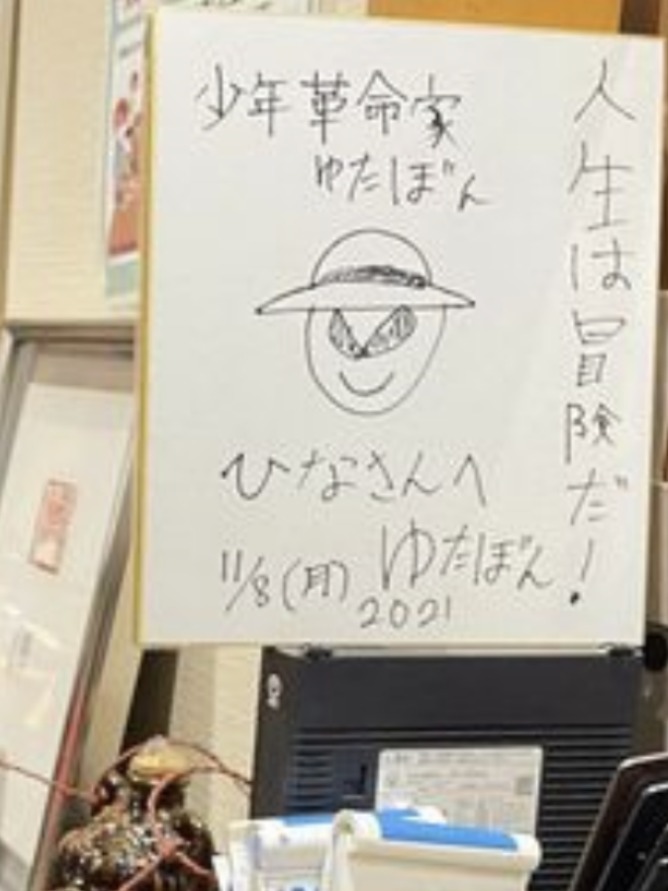 人生は冒険だ!
少年革命家
ゆたぼん
ひなさんへ
ゆたぼん
11/8(月)
2021